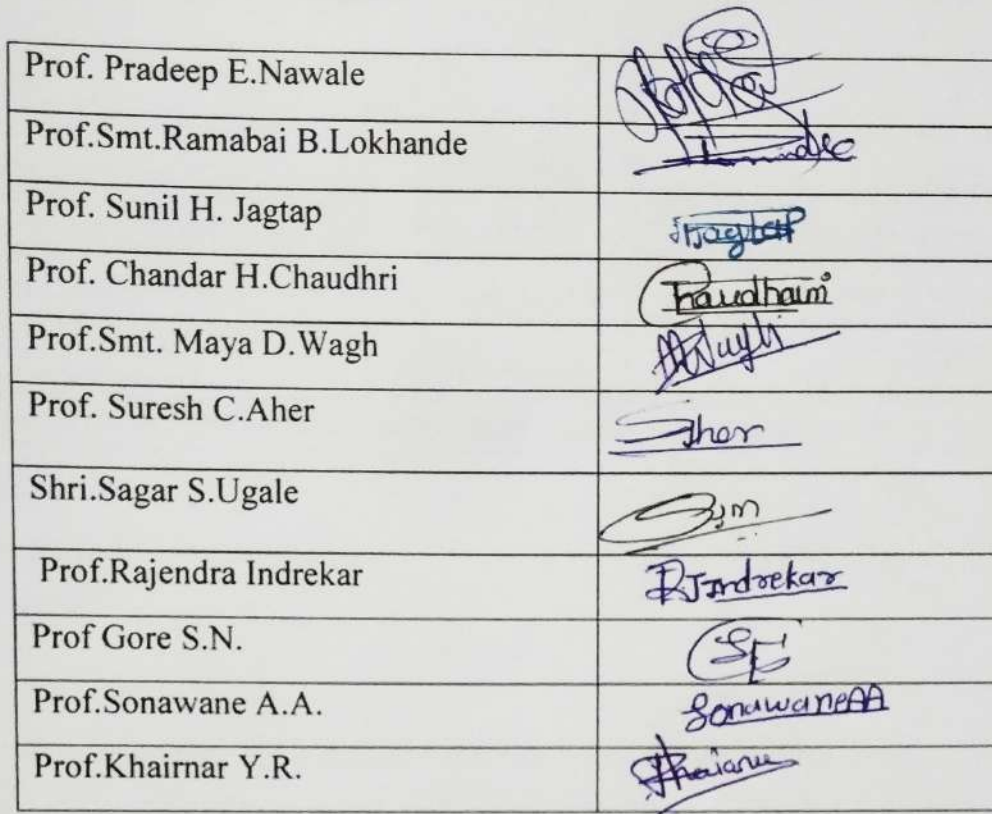 Prof. Pradeep E.Nawale
Prof.Smt.Ramabai B.Lokhande
Prof. Sunil H. Jagtap Jagtap
Prof. Chandar H.Chaudhri
Prof.Smt. Maya D.Wagh Wagh
Prof. Suresh C.Aher Aher
Shri.Sagar S.Ugale
Prof.Rajendra Indrekar RIndrekar
Prof Gore S.N.
Prof.Sonawane A.A. SonawaneAA
Prof.Khairnar Y.R.